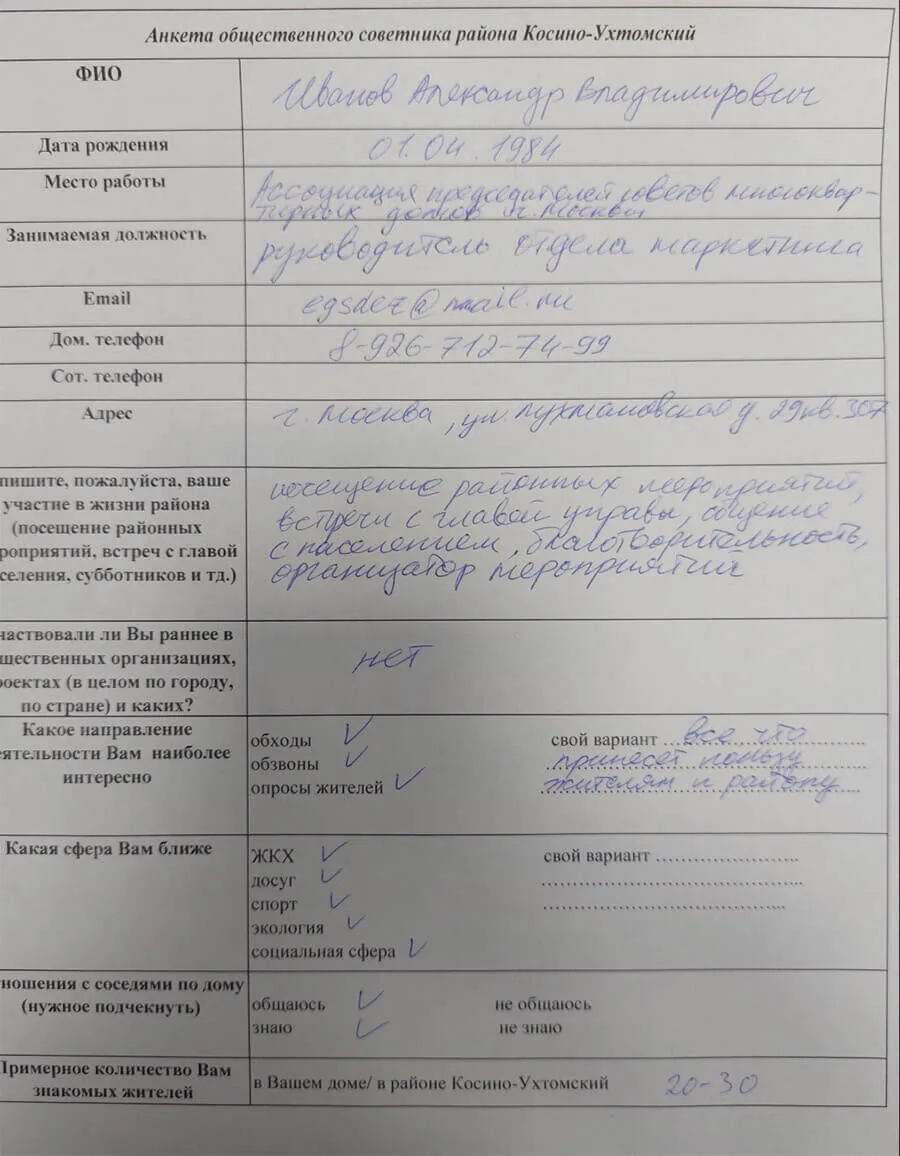 Анкета общественного советника района Косино-Ухтомский
ФИО
Иванов Александр Владимирович
Дата рождения
01.04.1984
Место работы
Ассоциация председателей советов многоквар-
тирных домов г. Москвы
Занимаемая должность
руководитель отдела маркетинга
Email
egsdez@mail.ru
Дом. телефон
8-926-712-74-99
Сот. телефон
Адрес
г. Москва, ул. Лухмановская д. 29 кв. 307
пишите, пожалуйста, ваше
участие в жизни района
(посещение районных
роприятий, встреч с главой
селения, субботников и тд.)
посещение районных мероприятий,
встречи с главой управы, общение
с населением, благотворительность,
организатор мероприятий
частвовали ли Вы раннее в
щественных организациях,
роектах (в целом по городу,
по стране) и каких?
нет
Какое направление
еятельности Вам наиболее
интересно
обходы
обзвоны
опросы жителей
свой вариант все что
принесет пользу
жителям и району
Какая сфера Вам ближе
ЖКХ
досуг
спорт
экология
социальная сфера
свой вариант
ношения с соседями по дому
(нужное подчекнуть)
общаюсь не общаюсь
знаю не знаю
Примерное количество Вам
знакомых жителей
в Вашем доме/ в районе Косино-Ухтомский 20-30